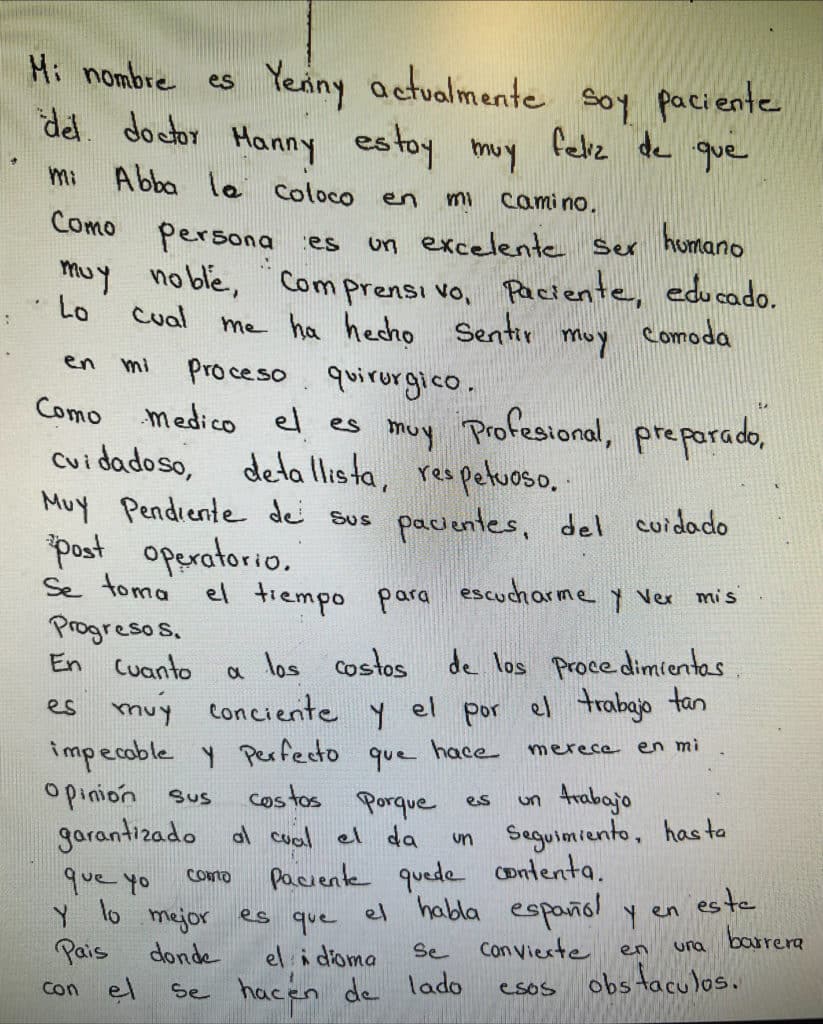 Mi nombre es Yenny actualmente soy paciente
del doctor Manny estoy muy feliz de que
mi Abba lo coloco en mi camino.
Como persona es un excelente ser humano
muy noble, comprensivo, paciente, educado.
Lo cual me ha hecho sentir muy comoda
en mi proceso quirurgico.
Como medico el es muy Profesional, preparado,
cuidadoso, detallista, respetuoso.
Muy Pendiente de sus pacientes, del cuidado
post operatorio.
Se toma el tiempo para escucharme y ver mis
Progresos.
En cuanto a los costos de los procedimientas
es muy conciente y el por el trabajo tan
impecable y Perfecto que hace merece en mi
opinión sus costos Porque es un trabajo
garantizado al cual el da un Seguimiento, hasta
que yo como Paciente quede contenta.
Y lo mejor es que el habla español y en este
Pais donde el idioma se convierte en una barrera
con el se hacen de lado esos obstaculos.